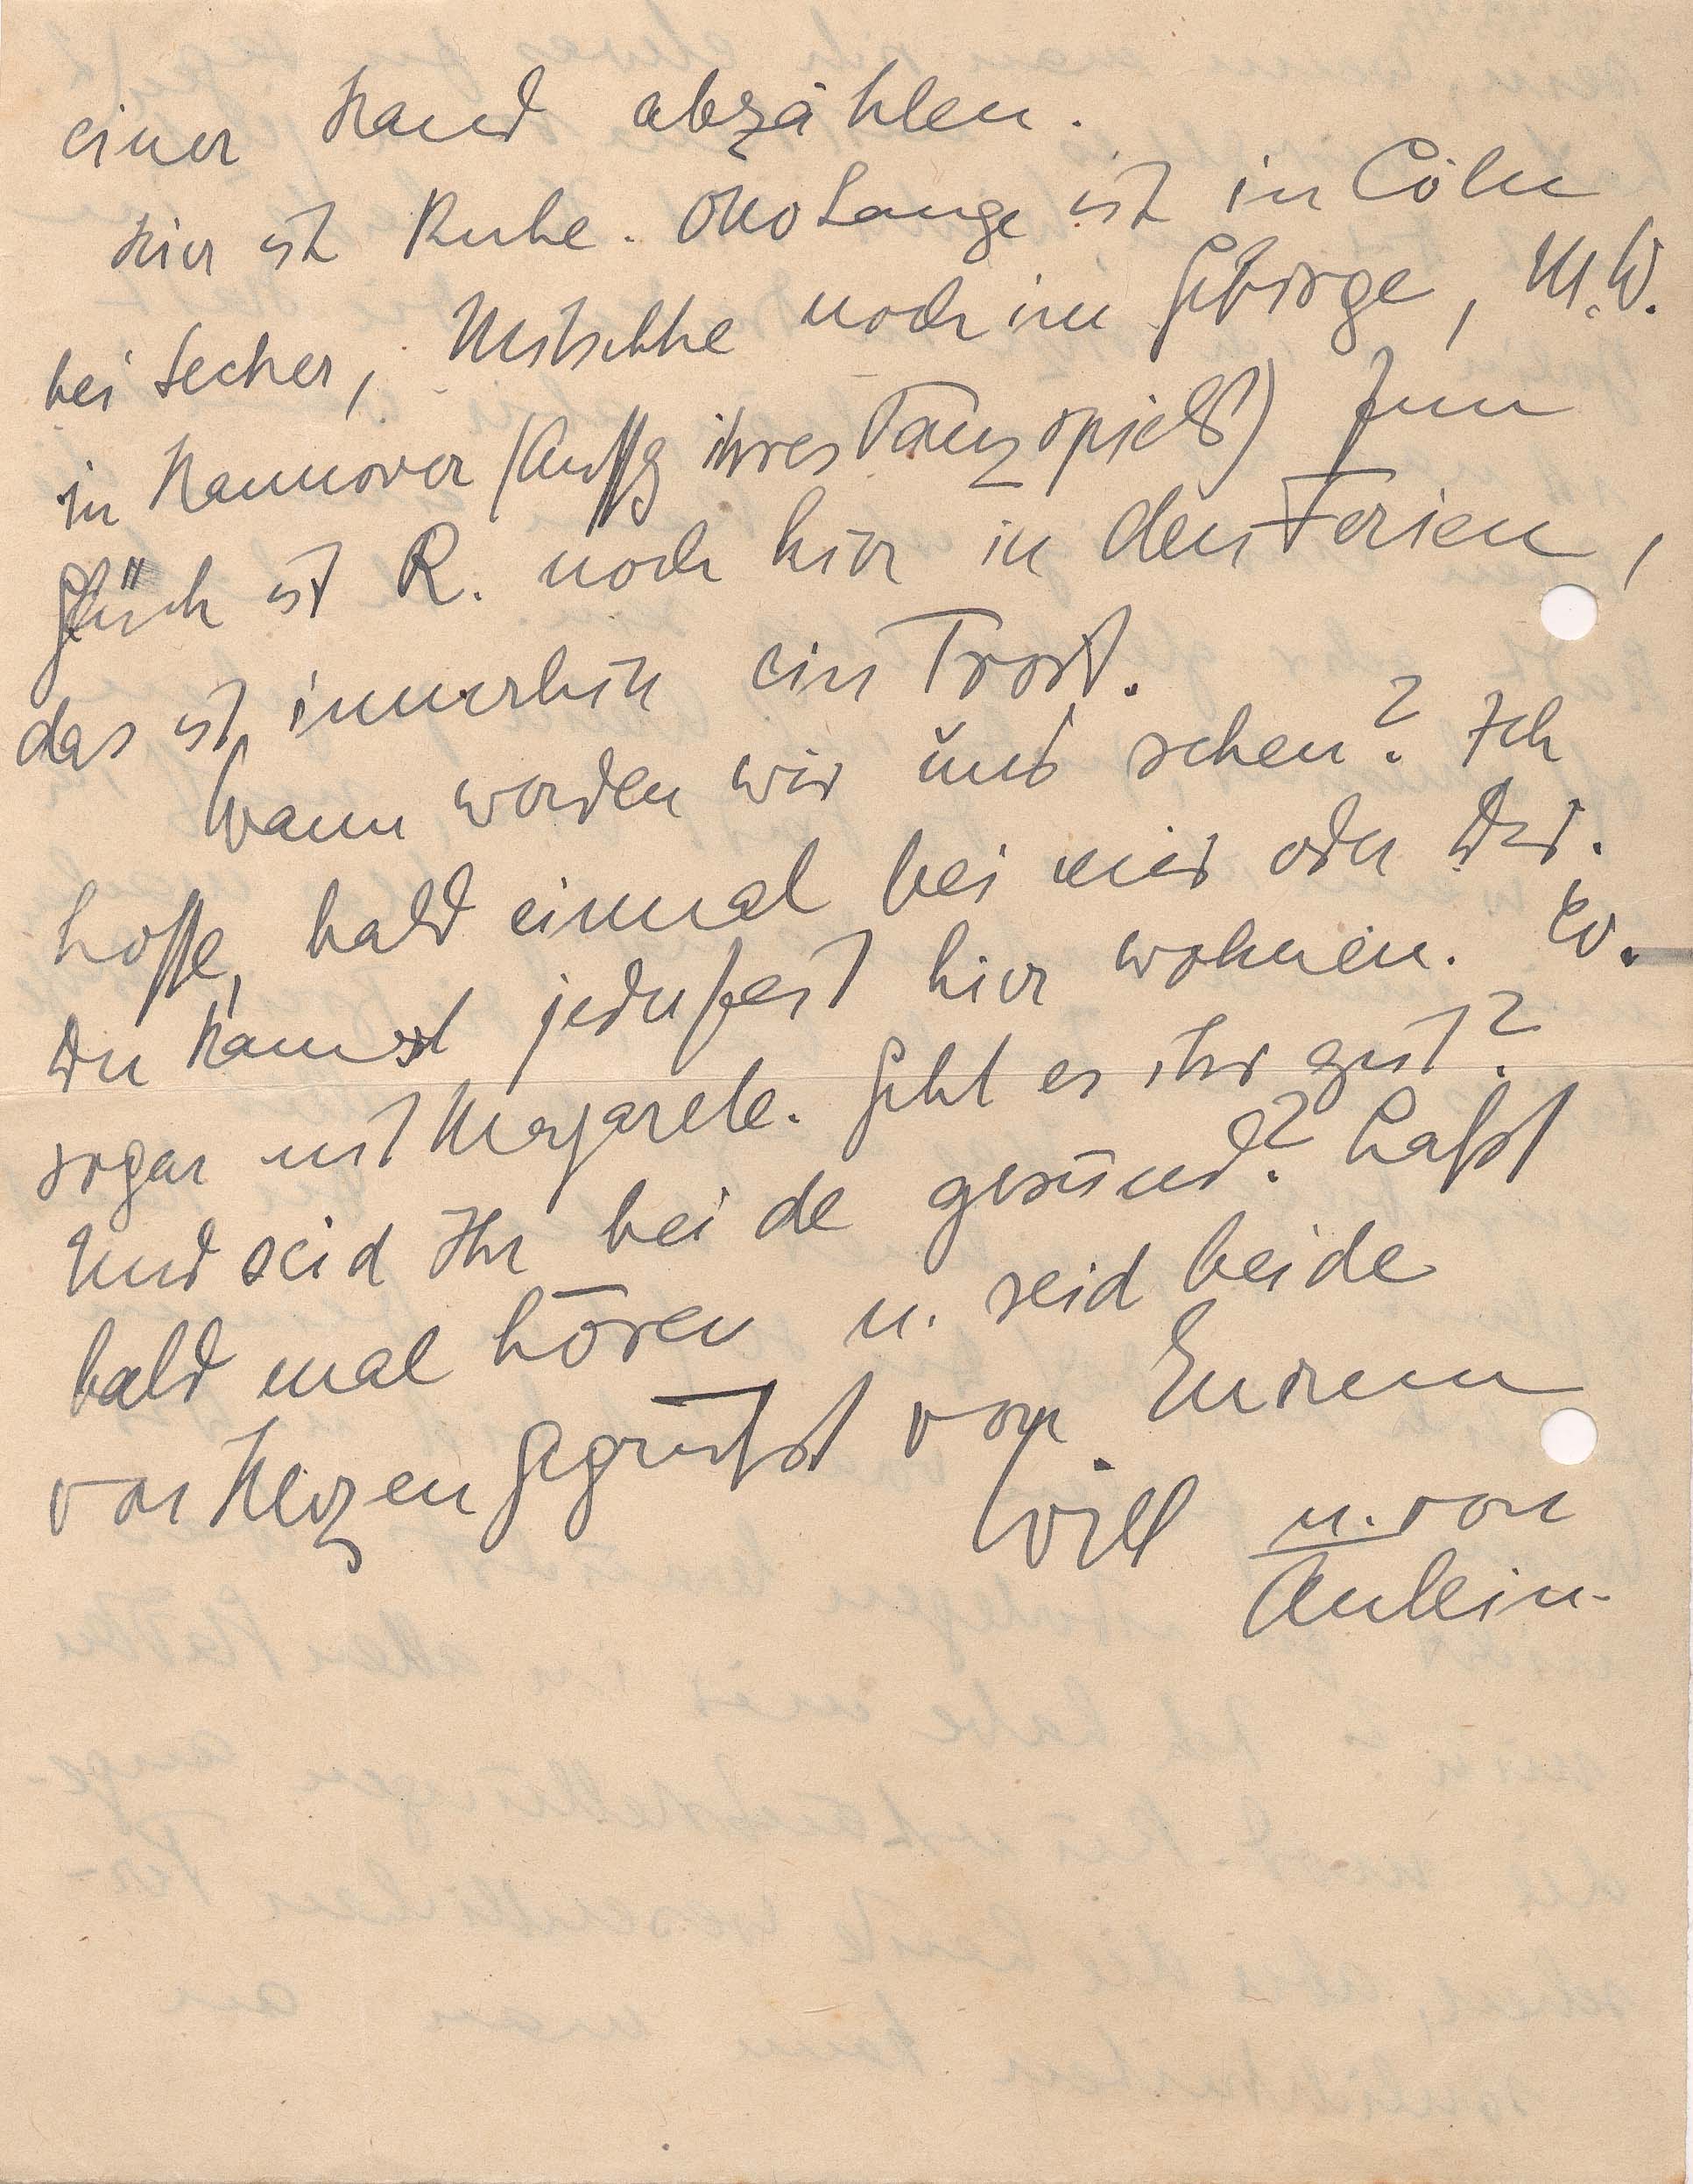 einer Hand abzählen.
Hier ist Ruhe. Otto Lange ist in Cöln
bei Secher, noch im Gebirge, M. W.
in Hannover (Auffg ihres Tanzspiels) Zum
Glück ist R. noch hier in den Ferien,
das ist immerhin ein Trost.
Wann werden wir uns sehen? Ich
hoffe, bald einmal bei mir oder Dir.
Du kannst jederzeit hier wohnen. Ev.
sogar mit Margarete. Geht es ihr gut?
Und seid Ihr beide gesund? Laßt
bald mal hören u. seid beide
von Herzen gegrüßt von Eurem
Will u. von
Änlein.